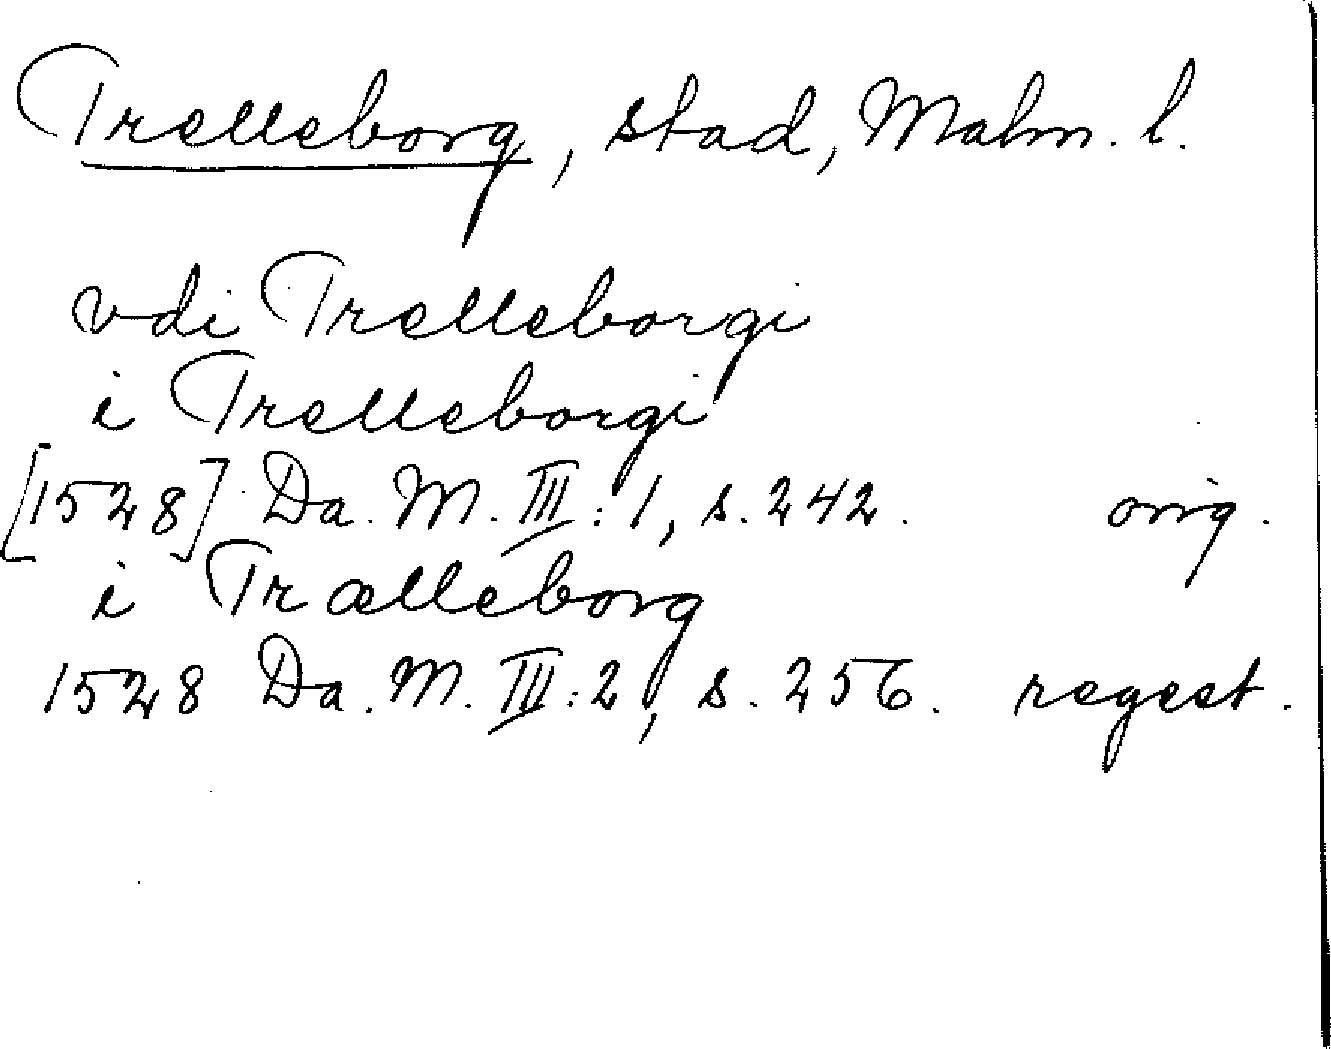 Trelleborg, stad, Malm. l.
vdi Trelleborgi
i Trelleborgi
[1528] Da. M. III:1, s. 242. orig.
i Trælleborg
1528 Da. M. III:2, s. 256. regest.